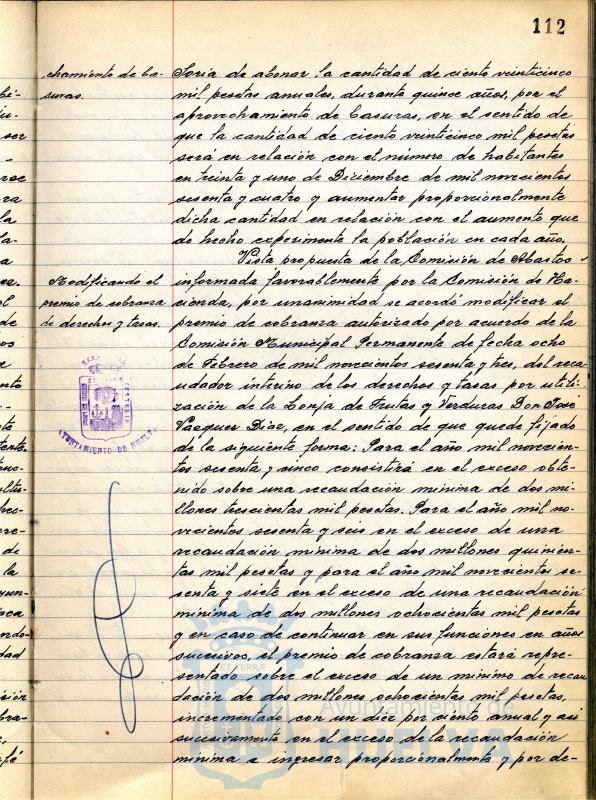 112
chamiento de ba-
suras.
Soria de abonar la cantidad de ciento veinticinco
mil pesetas anuales, durante quince años, por el
aprovechamiento de basuras, en el sentido de
que la cantidad de ciento veinticinco mil pesetas
sera en relación con el número de habitantes
en treinta y uno de Diciembre de mil novecientos
sesenta y cuatro y aumentar proporcionalmente
dicha cantidad en relación con el aumento que
de hecho experimente la población en cada año.
Vista propuesta de la Comisión de Abastos
Modificando el
premio de cobranza
de derechos y tasas.
informada favorablemente por la Comisión de Ha-
cienda, por unanimidad se acordó modificar el
premio de cobranza autorizado por acuerdo de la
Comisión Municipal Permanente de fecha ocho
de Febrero de mil novecientos sesenta y tres, del reca
udador interino de los derechos y tasas por utili-
zación de la Lonja de Frutas y Verduras Don José
Vazquez Diaz, en el sentido de que quede fijado
de la siguiente forma: Para el año mil novecien-
tos sesenta y cinco consistirá en el exceso obte-
nido sobre una recaudación minima de dos mi-
llones trescientas mil pesetas. Para el año mil no-
vecientos sesenta y seis en el exceso de una
recaudación minima de dos millones quinien-
tas mil pesetas y para el año mil novecientos se-
senta y siete en el exceso de una recaudación
minima de dos millones ochocientas mil pesetas
y en caso de continuar en sus funciones en años
sucesivos, el premio de cobranza estará repre-
sentado sobre el exceso de un minimo de recau
dación de dos millones ochocientas mil pesetas,
incrementado con un diez por ciento anual y asi
sucesivamente en el exceso de la recaudación
minima a ingresar proporcionalmente y por de-
AYUNTAMIENTO DE HUELVA
Ayuntamiento de
HUELVA